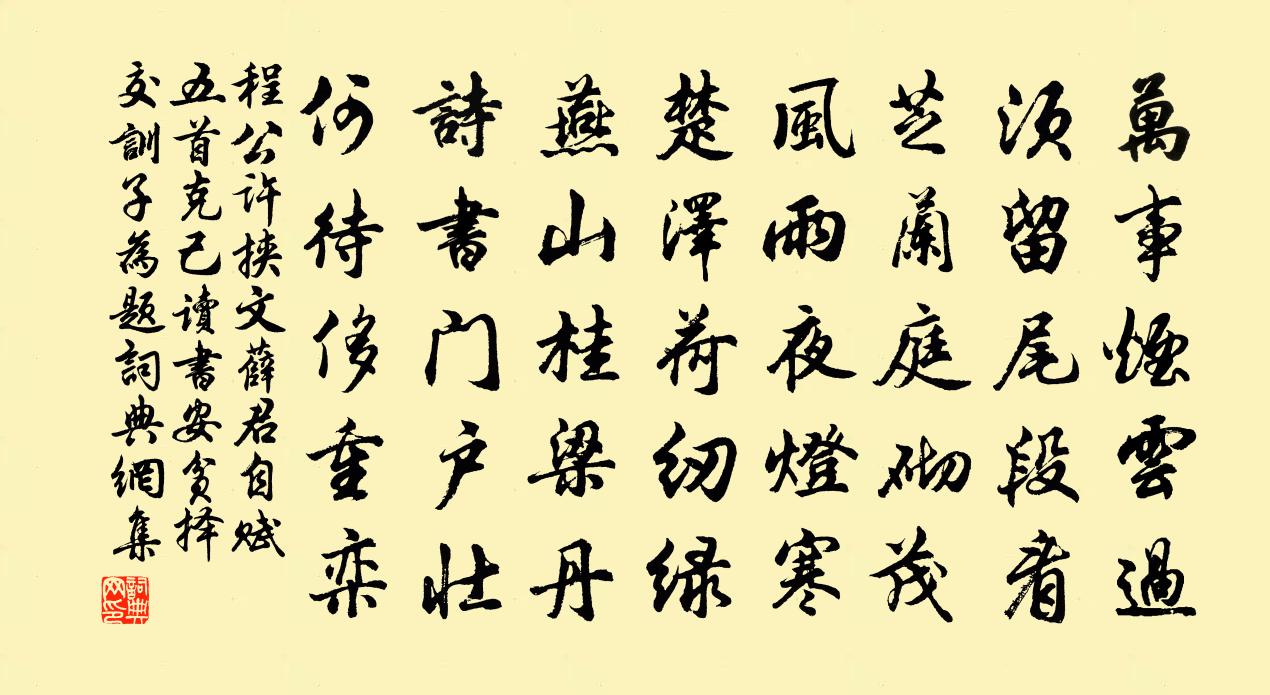 萬事煙雲過
須留尾段看
芝蘭庭砌茂
風雨夜燈寒
楚澤荷紉緑
燕山桂梁丹
詩書门户壮
何待侈重栾
程公许挟文薛君自赋
五首克己讀書安貧择
交訓子為题詞典網集
詞典网印